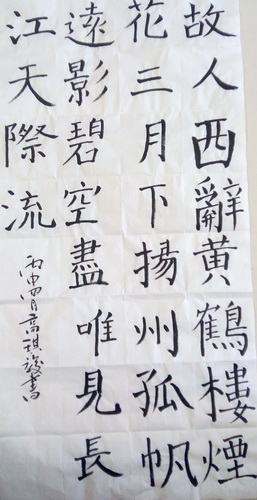 故人西辭黄鶴樓煙
花三月下揚州孤帆
遠影碧空盡唯見長
江天際流
丙申四月高琪俊書